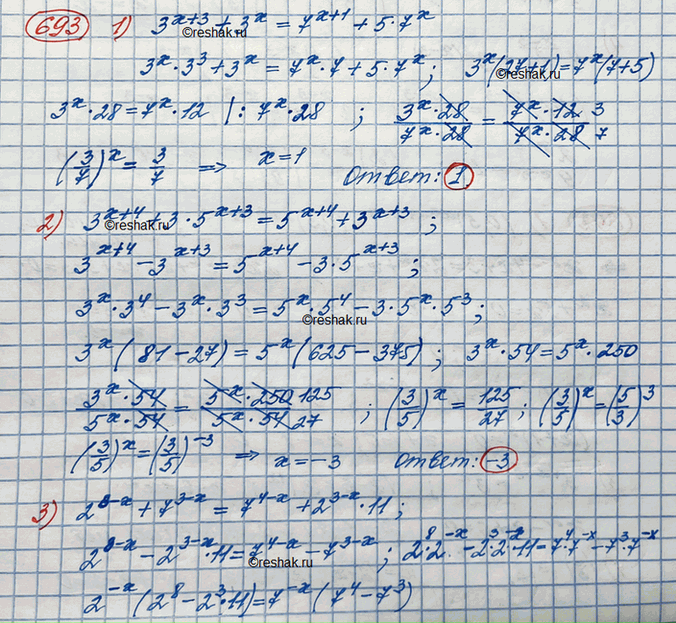 693 1) 3^{x+3} + 3^x = 7^{x+1} + 5·7^x
©reshak.ru
3^x·3^3 + 3^x = 7^x·7 + 5·7^x ; 3^x(27+1) = 7^x(7+5)
©reshak.ru
3^x·28 = 7^x·12 |: 7^x·28 ; (3^x·28)/(7^x·28) = (7^x·12 3)/(7^x·28 7)
(3/7)^x = 3/7 => x=1 Ответ: 1.
2) 3^{x+4} + 3·5^{x+3} = 5^{x+4} + 3^{x+3} ;
©reshak.ru
3^{x+4} − 3^{x+3} = 5^{x+4} − 3·5^{x+3} ;
3^x·3^4 − 3^x·3^3 = 5^x·5^4 − 3·5^x·5^3 ;
©reshak.ru
3^x(81−27) = 5^x(625−375) ; 3^x·54 = 5^x·250
(3^x·54)/(5^x·54) = (5^x·250 125)/(5^x·54 27) ; (3/5)^x = 125/27 ; (3/5)^x = (5/3)^3
(3/5)^x = (3/5)^{−3} => x = −3 Ответ: −3
3) 2^{8−x} + 7^{3−x} = 7^{4−x} + 2^{3−x}·11 ;
2^{8−x} − 2^{3−x}·11 = 7^{4−x} − 7^{3−x} ; 2^8·2^{−x} − 2^3·2^{−x}·11 = 7^4·7^{−x} − 7^3·7^{−x}
©reshak.ru
2^{−x}(2^8 − 2^3·11) = 7^{−x}(7^4 − 7^3)